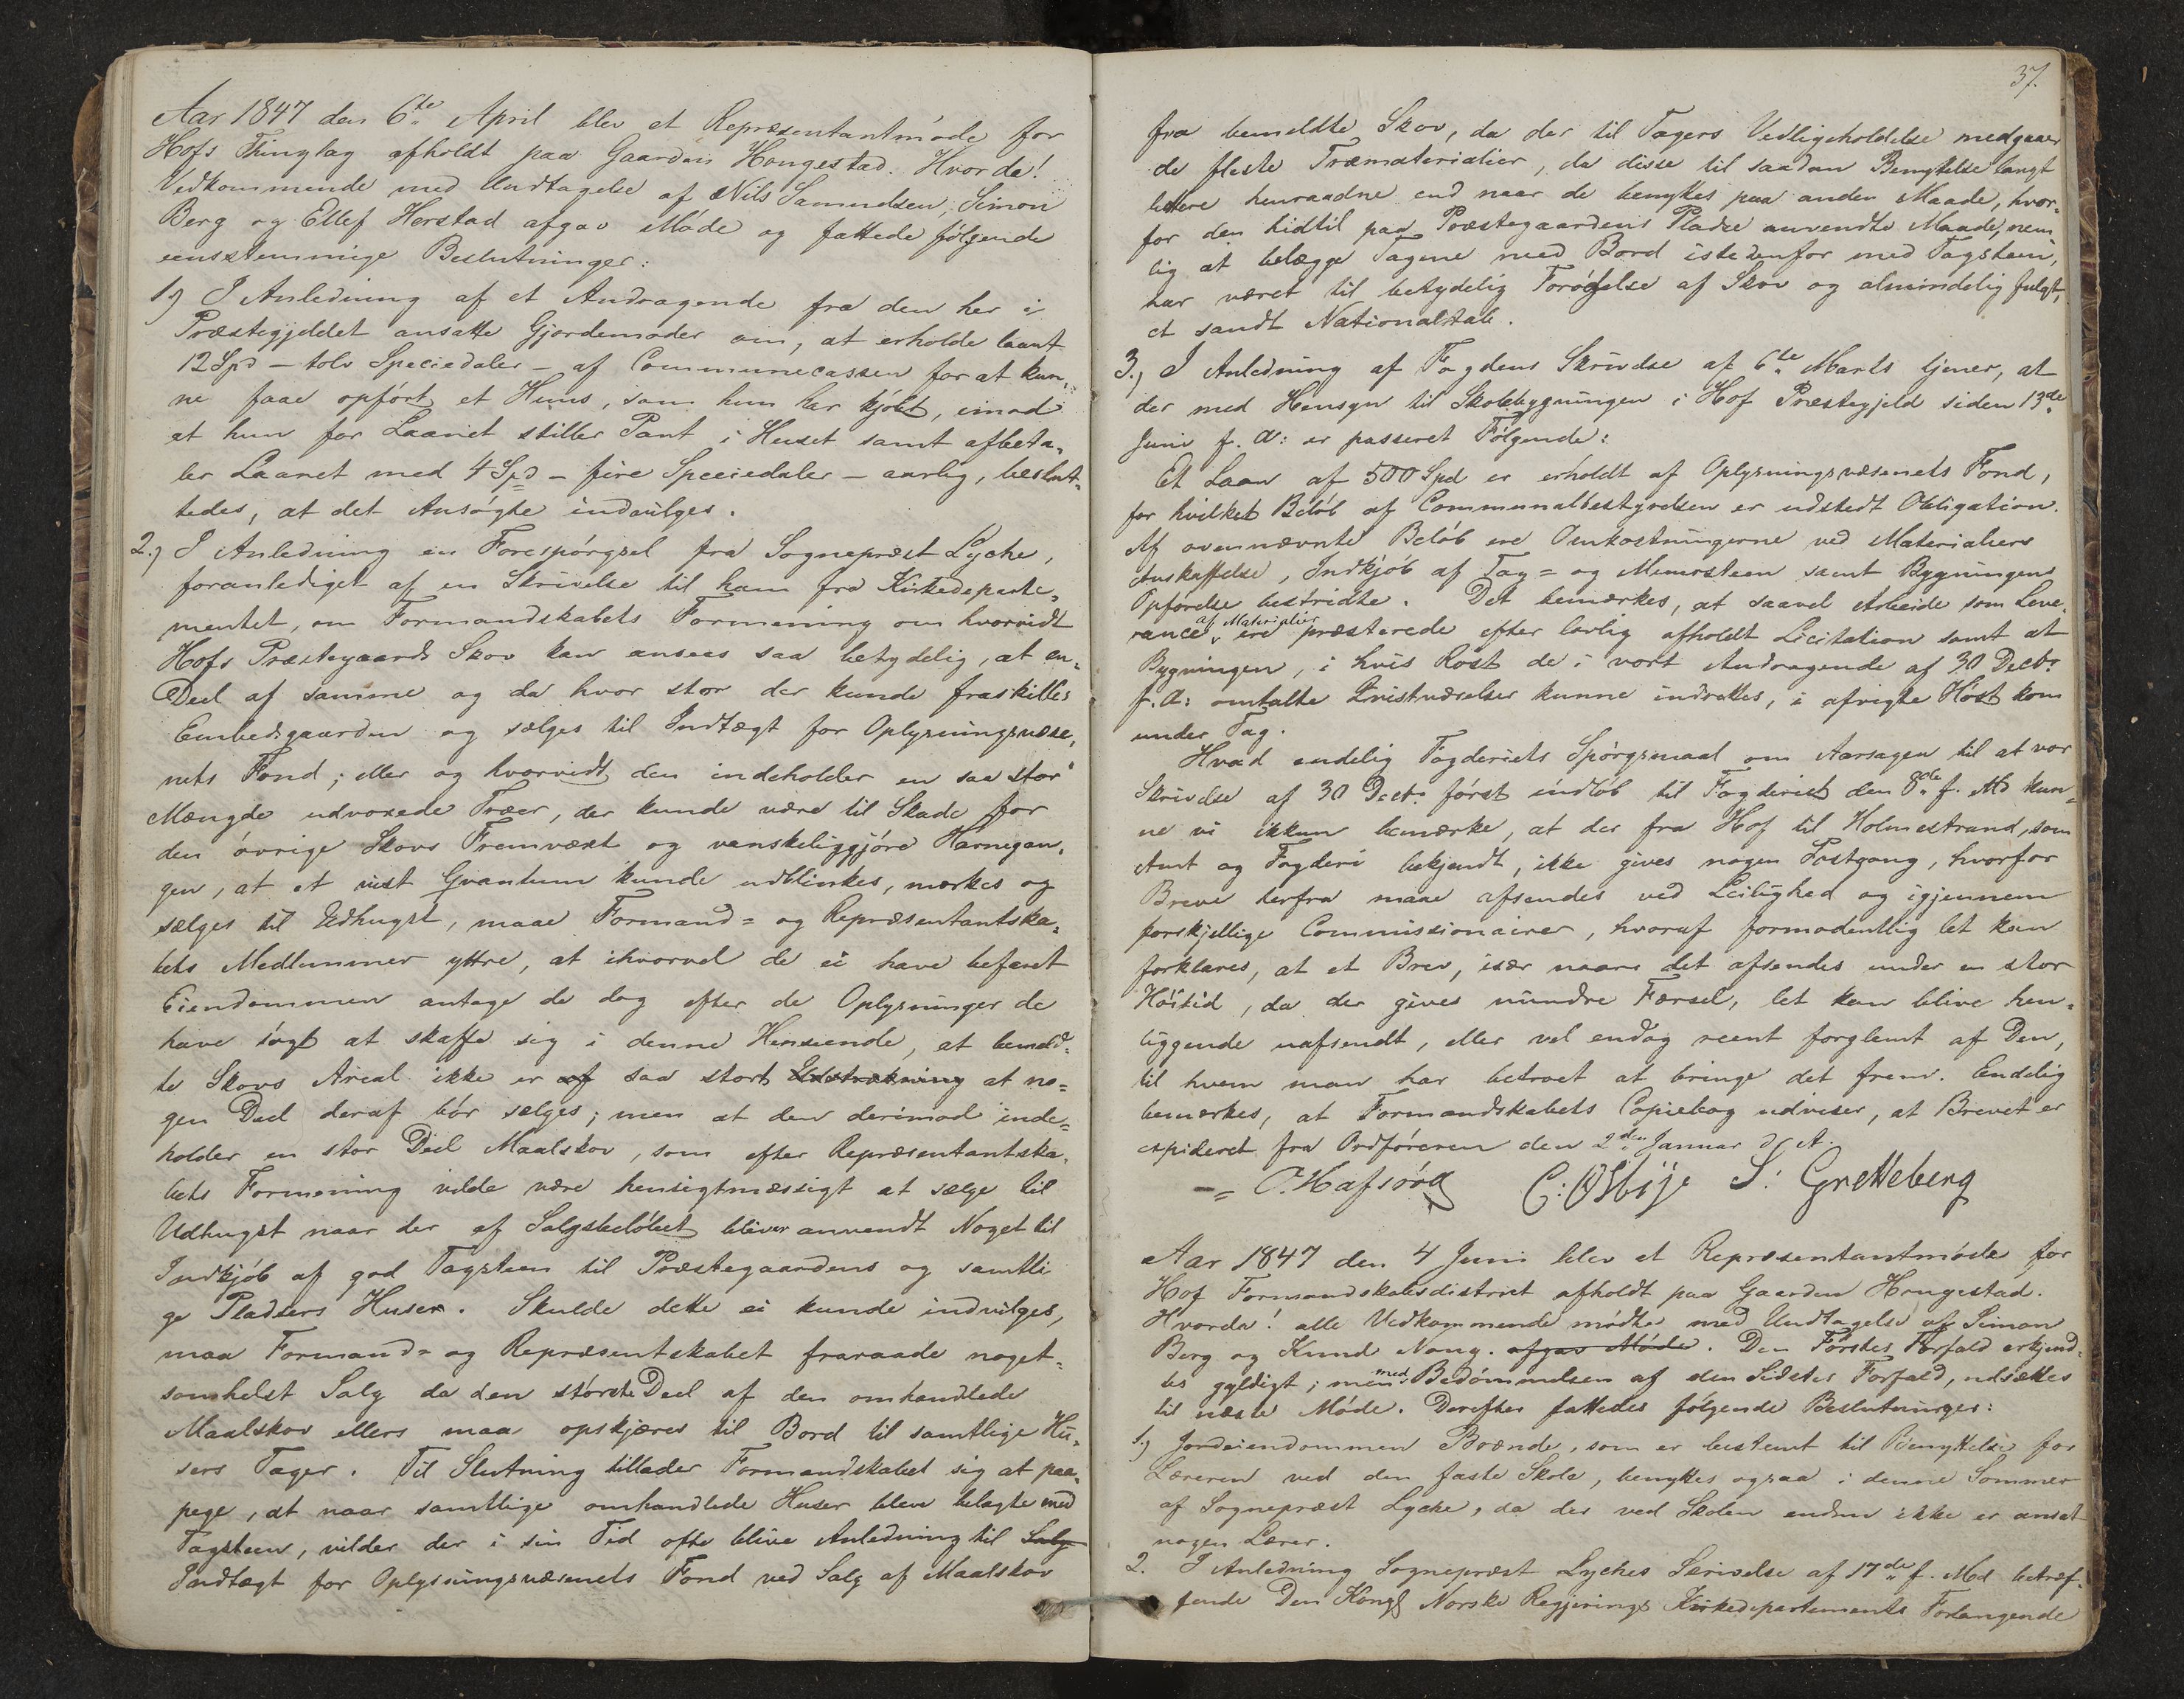 Aar 1847 den 6te April blev et Repræsentantmøde for
Hofs Thinglag afholdt paa Gaarden Hængestad. Hvorda!
Vedkommende med Undtagelse af Nils Samuelsen, Simon
Berg og Ellef Herstad afgav Møde og fattede følgende
eensstemmige Beslutninger:
1) I Anledning af et Andragende fra den her i
Præstegjeldet ansatte Gjordemoder om, at erholde laant
12 Spd – tolv Speciedaler – af Communecassen for at kun-
ne faae opført et Huus, som hun har kjøbt, imod
at hun for Laanet stiller Pant i Huset samt afbeta-
ler Laanet med 4 Spd – fire Speciedaler – aarlig, beslut-
tedes, at det Ansøgte indvilges.
2.) I Anledning en Forespørgsel fra Sognepræst Lyche,
foranlediget af en Skrivelse til ham fra Kirkedeparte-
mentet, om Formandskabets Formening om hvorvidt
Hofs Præstegaards Skov kan ansees saa betydelig, at en
Deel af samme og da hvor stor der kunde fraskilles
Embedsgaarden og sælges til Indtægt for Oplysningsvæse-
nets Fond; eller og hvorvidt den indeholder en saa stor
Mængde udvoxede Træer, der kunde være til Skade for
den øvrige Skovs Fremvæxt og vanskeliggjøre Havnegan-
gen, at et vist Qvantum kunde udblinkes, mærkes og
sælges til Udhugst, maae Formand= og Repræsentantska-
bets Medlemmer yttre, at ihvorvel de ei have befaret
Eiendommen antage de dog efter de Oplysninger de
have søgt at skaffe sig i denne Henseende, at bemeld-
te Skovs Areal ikke er af saa stort Udstrækning at no-
gen Deel deraf bør sælges; men at den derimod inde-
holder en stor Deel Maalskov, som efter Repræsentantska-
bets Formening vilde være hensigtmæssigt at sælge til
Udhugst naar der af Salgsbeløbet bliver anvendt Noget til
Indkjøb af god Tagsteen til Præstegaardens og samtli
ge Pladsers Huser. Skulde dette ei kunde indvilges,
maa Formand= og Repræsentskabet fraraade noget-
somhelst Salg da den største Deel af den omhandlede
Maalskov ellers maa opskjæres til Bord til samtlige Hu-
sers Tager. Til Slutning tillader Formandskabet sig at paa-
pege, at naar samtlige omhandlede Huser bleve belagte med
Tagsteen, vilder der i sin Tid ofte blive Anledning til Salg
Indtægt for Oplysningsvæsenets Fond ved Salg af Maalskov
37.
fra bemeldte Skov, da der til Tagers Vedligeholdelse medgaaer
de fleste Træmaterialier, da disse til saadan Benyttelse langt
lettere henraadne end naar de benyttes paa anden Maade, hvor-
for den hidtil paa Præstegaardens Pladse anvendte Maade, nem
lig at belægge Tagene med Bord istedenfor med Tagsteen,
har været til betydelig Forødelse af Skov og almindelig fulgt,
et sandt Nationaltab.
3.) I Anledning af Fogdens Skrivelse af 6te Marts tjener, at
der med Hensyn til Skolebygningen i Hof Præstegjeld siden 13de
Juni f. A: er passeret Følgende:
Et Laan af 500 Spd er erholdt af Oplysningsvæsenets Fond,
for hvilket Beløb af Communalbestyrelsen er udstedt Obligation.
Af ovennævnte Beløb ere Omkostningerne ved Materialiers
Anskaffelse, Indkjøb af Tag= og Muursteen samt Bygningens
Opførelse bestridte. Det bemærkes, at saavel Arbeide som Leve-
rance af Materialier ere præsterede efter lovlig afholdt Licitation samt at
Bygningen, i hvis Røst de i vort Andragende af 30 Decbr
f. A: omtalte Qvistværelser kunne indrettes, i afvigte Høst kom
under Tag.
Hvad endelig Fogderiets Spørgsmaal om Aarsagen til at vor
Skrivelse af 30 Decbr først indløb til Fogderiet den 8de f. Md kun-
ne vi ikkun bemærke, at der fra Hof til Holmestrand, som
Amt og Fogderi bekjendt, ikke gives nogen Postgang, hvorfor
Breve herfra maae afsendes ved Leilighed og igjennem
forskjellige Commissionairer, hvoraf formodentlig let kan
forklares, at et Brev, især naar det afsendes under en stor
Høitid, da der gives mindre Færsel, let kan blive hen-
liggende uafsendt, eller vel endog reent forglemt af Den,
til hvem man har betroet at bringe det frem. Endelig
bemærkes, at Formandskabets Copiebog udviser, at Brevet er
expideret fra Ordføreren den 2den Januar d. A.
O. Hafsørg C: Østbye S: Gretteberg
Aar 1847 den 4 Juni blev et Repræsentantmøde for
Hof Formandskabsdistrict afholdt paa Gaarden Hængestad.
Hvorda! alle Vedkommende mødte med Undtagelse af Simon
Berg og Knud Nøng. afgav Møde. Den Førstes Forfald erkjend-
tes gyldigt; men med Bedømmelsen af den Sidstes Forfald, udsættes
til næste Møde. Derefter fattedes følgende Beslutninger:
1.) Jordeiendommen Brænde, som er bestemt til Benyttelse for
Læreren ved den faste Skole, benyttes ogsaa i denne Sommer
af Sognepræst Lyche, da der ved Skolen endnu ikke er ansat
nogen Lærer.
2. I Anledning Sognepræst Lyches Skrivelse af 17de f. Md betræf-
fende Den Kongl Norske Regjerings Kirkedepartements Forlangende